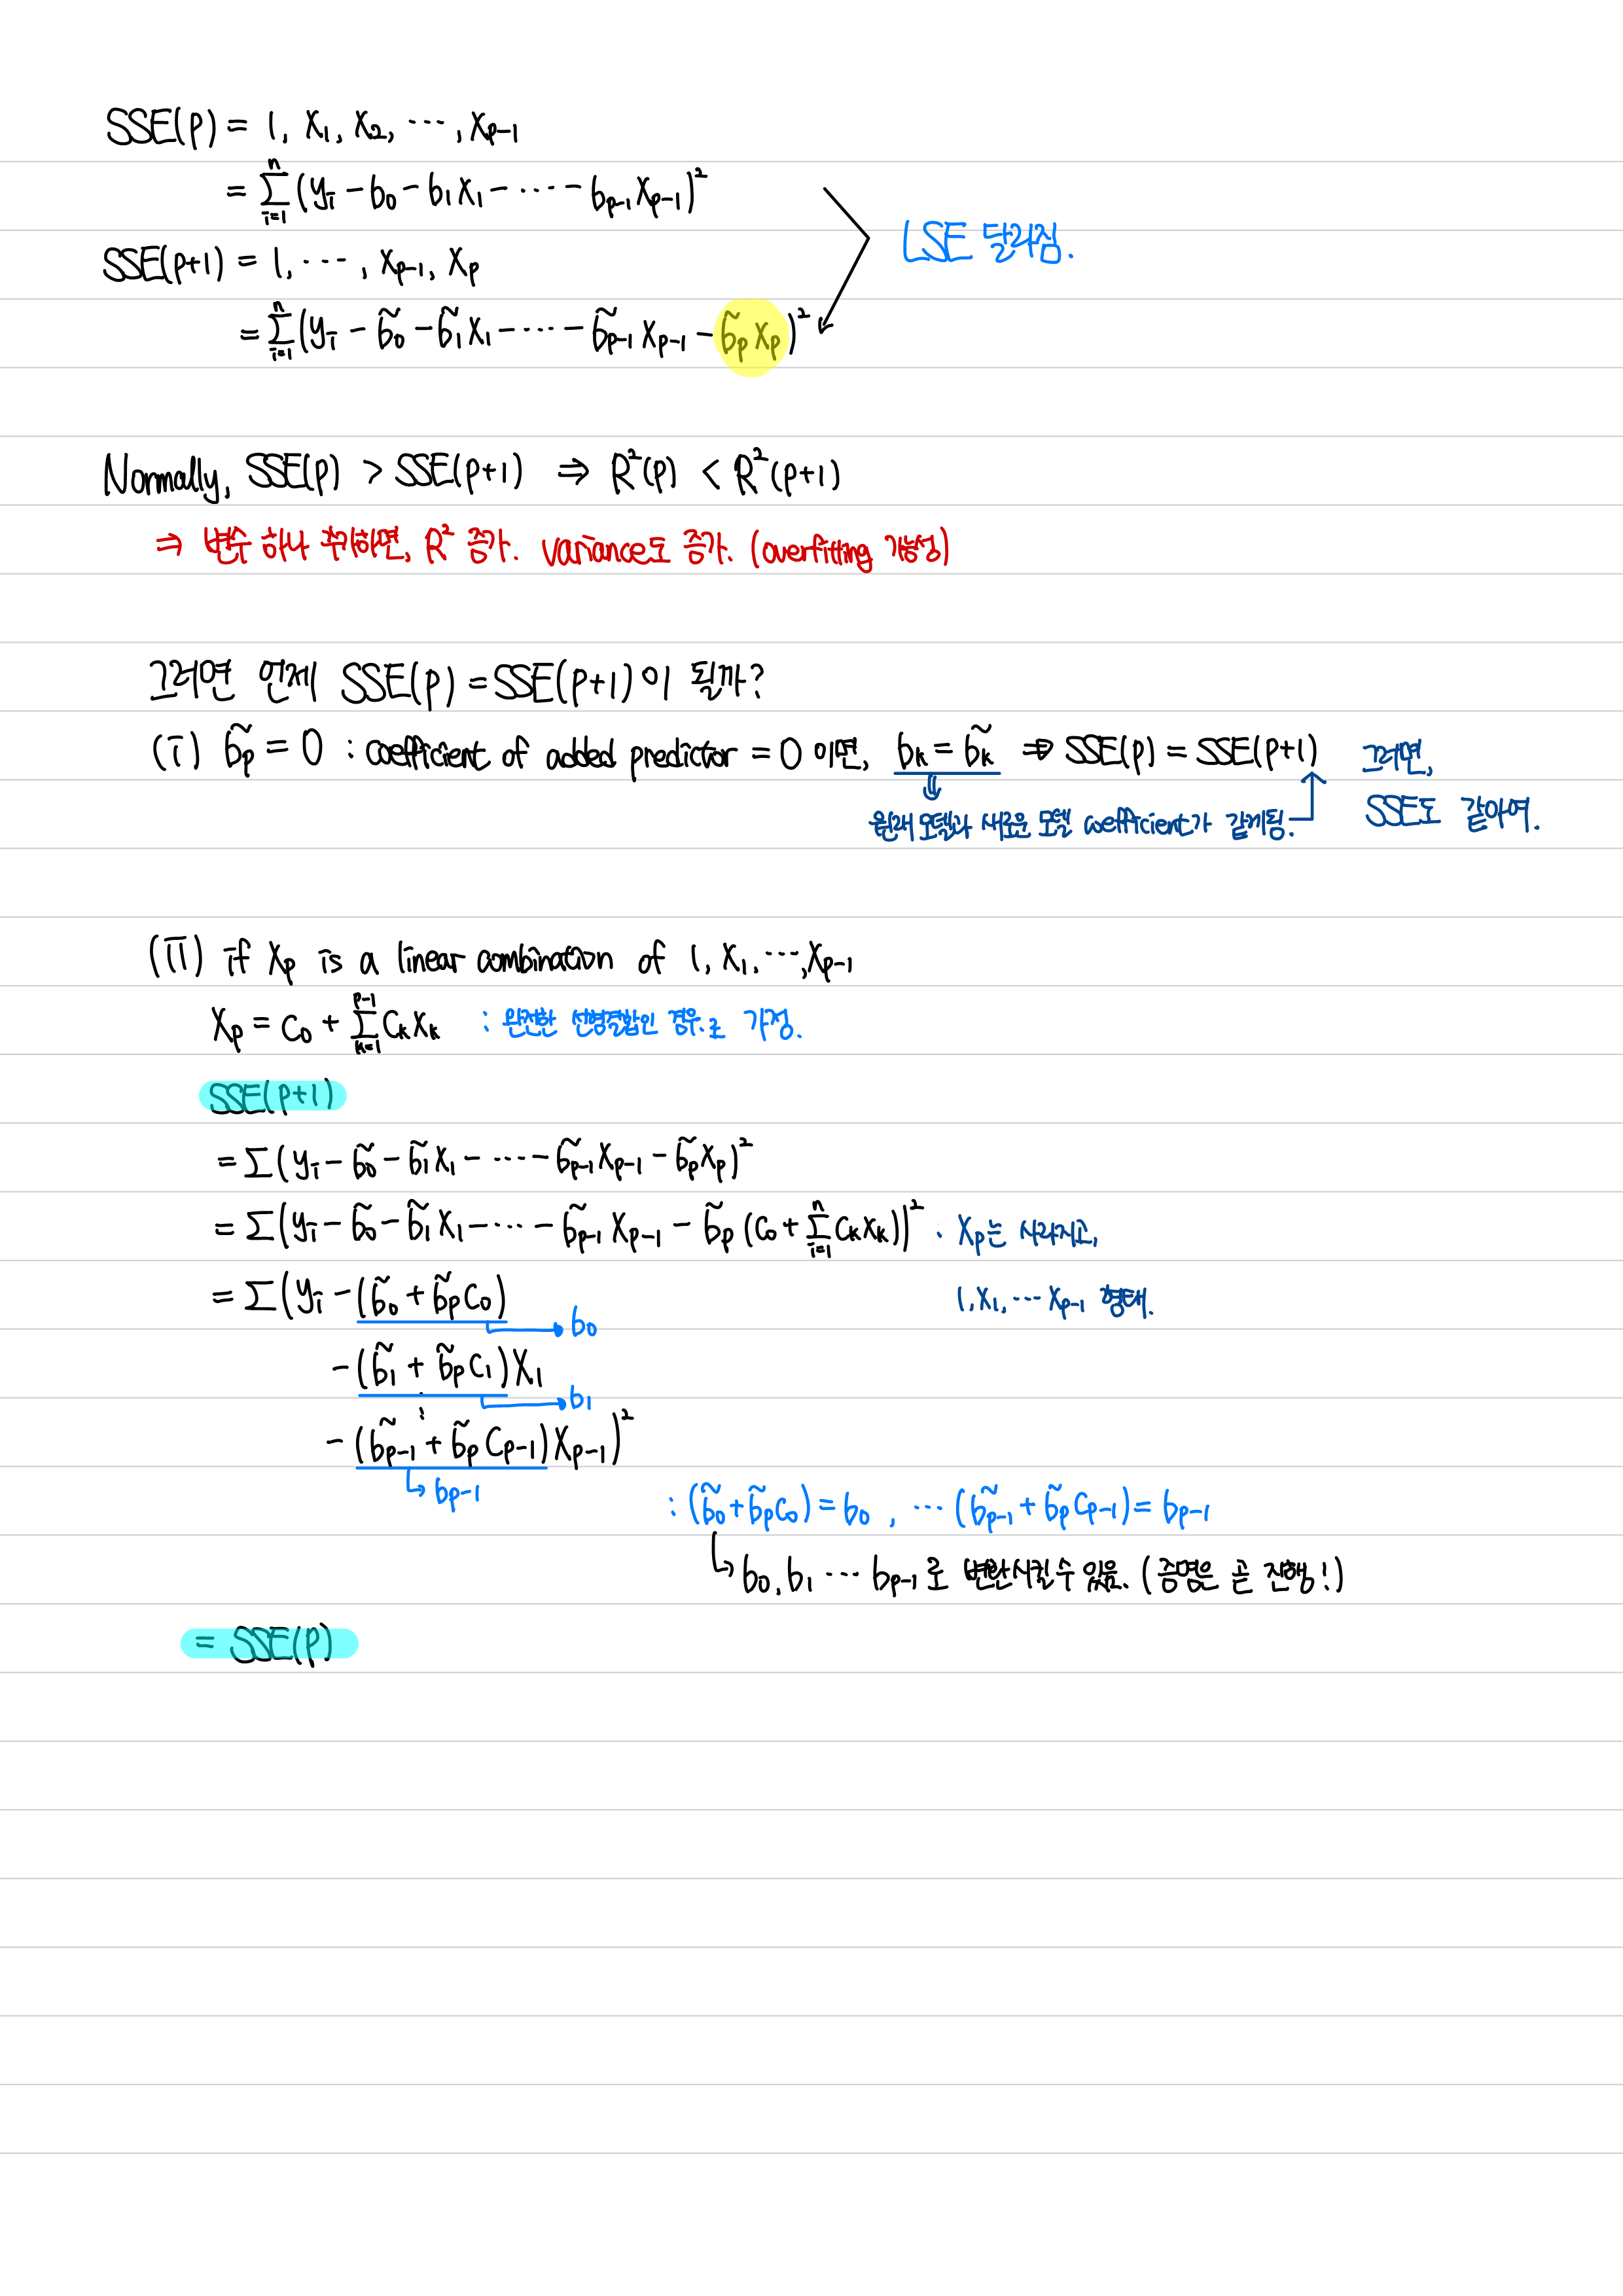 SSE(p) = 1, X₁, X₂, ⋯, Xp-1
= Σⁿᵢ₌₁ (yᵢ - b₀ - b₁X₁ - ⋯ - bp-1Xp-1)²
LSE 달라짐.
SSE(p+1) = 1, ⋯, Xp-1, Xp
= Σⁿᵢ₌₁ (yᵢ - b̃₀ - b̃₁X₁ - ⋯ - b̃p-1 Xp-1 - b̃p Xp)²
Normally, SSE(p) > SSE(p+1) ⇒ R²(p) < R²(p+1)
⇒ 변수 하나 추가하면, R² 증가. variance도 증가. (overfitting 가능성)
그러면 언제 SSE(p) = SSE(p+1)이 될까?
(i) b̃p = 0 : coefficient of added predictor = 0 이면, bk = b̃k ⇒ SSE(p) = SSE(p+1) 그러면,
원래 모델과 새로운 모델 coefficient가 같게됨. SSE도 같아여.
(ii) if Xp is a linear combination of 1, X₁, ⋯, Xp-1
Xp = c₀ + Σᵖ⁻¹ₖ₌₁ CkXk : 완전한 선형결합인 경우.로 가정.
SSE(p+1)
= Σ(yᵢ - b̃₀ - b̃₁X₁ - ⋯ - b̃p-1Xp-1 - b̃pXp)²
= Σ(yᵢ - b̃₀ - b̃₁X₁ - ⋯ - b̃p-1Xp-1 - b̃p(c₀ + Σⁿᵢ₌₁ CkXk))² : Xp는 사라지고,
= Σ(yᵢ - (b̃₀ + b̃pC₀) 1, X₁, ⋯ Xp-1 형태.
→ b₀
- (b̃₁ + b̃pC₁)X₁
→ b₁
⋮
- (b̃p-1 + b̃pCp-1)Xp-1)²
↳ bp-1
: (b̃₀ + b̃pC₀) = b₀, ⋯ (b̃p-1 + b̃pCp-1) = bp-1
↳ b₀, b₁ ⋯ bp-1로 변환시킬수 있음. (증명은 곧 진행!)
= SSE(p)